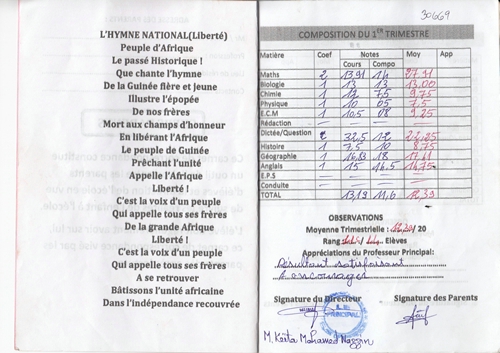 L'HYMNE NATIONAL(Liberté)
Peuple d'Afrique
Le passé Historique !
Que chante l'hymne
De la Guinée fière et Jeune
Illustre l'épopée
De nos frères
Mort aux champs d'honneur
En libérant l'Afrique
Le peuple de Guinée
Prêchant l'unité
Appelle l'Afrique
Liberté !
C'est la voix d'un peuple
Qui appelle tous ses frères
De la grande Afrique
Liberté !
C'est la voix d'un peuple
Qui appelle tous ses frères
A se retrouver
Bâtissons l'unité africaine
Dans l'indépendance recouvrée
30669
COMPOSITION DU 1ER TRIMESTRE
Matière Coef Notes Moy App
Cours Compo
Maths 2 13,91 14 27,91
Biologie 1 13 13 13,00
Chimie 1 12 7,5 9,75
Physique 1 10 05 7,5
E.C.M 1 10,5 08 9,25
Rédaction
Dictée/Question 2 32,5 12
Histoire 1 7,5 10 8,75
Géographie 1 16,83 18 17,41
Anglais 1 15 14,5 14,75
E.P.S
Conduite
TOTAL 13,19 11,6 12,39
OBSERVATIONS
Moyenne Trimestrielle : / 20
Rang Elèves
Appréciations du Professeur Principal:
Résultant satisfaisant
A encourager
Signature du Directeur Signature des Parents
LE PRINCIPAL
M. Keita Mohamed